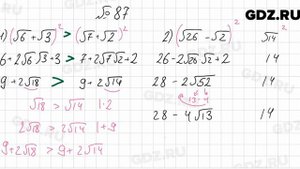 №87
GDZ.RU
1) (√6 + √3)² > (√7 + √2)²
6 + 2√6√3 + 3 > 7 + 2√7√2 + 2
9 + 2√18 > 9 + 2√14
√18 > √14 |·2
2√18 > 2√14 |+9
9 + 2√18 > 9 + 2√14
2) (√26 - √2)² √14²
26 - 2√26√2 + 2 14
28 - 2√52 14
13·4
28 - 4√13 14
GDZ.RU